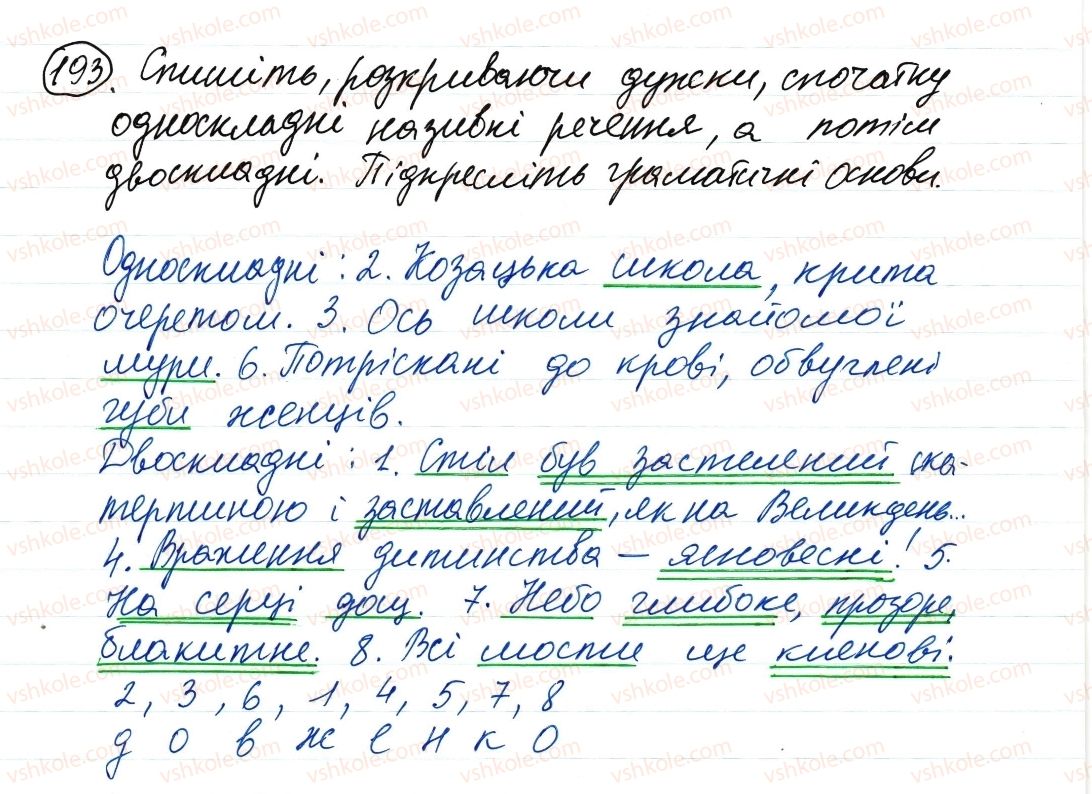 193. Спишіть, розкриваючи дужки, спочатку
односкладні називні речення, а потім
двоскладні. Підкресліть граматичні основи.
Односкладні: 2. Козацька школа, крита
очеретом. 3. Ось школи знайомої
мури. 6. Потріскані до крові, обвуглені
губи женців.
Двоскладні: 1. Стіл був застелений ска-
тертиною і заставлений, як на Великдень...
4. Враження дитинства – ясновесні! 5.
На серці дощ. 7. Небо глибоке, прозоре,
блакитне. 8. Всі мости ще кленові.
2, 3, 6, 1, 4, 5, 7, 8
д о в ж е н к о
vshkole.com